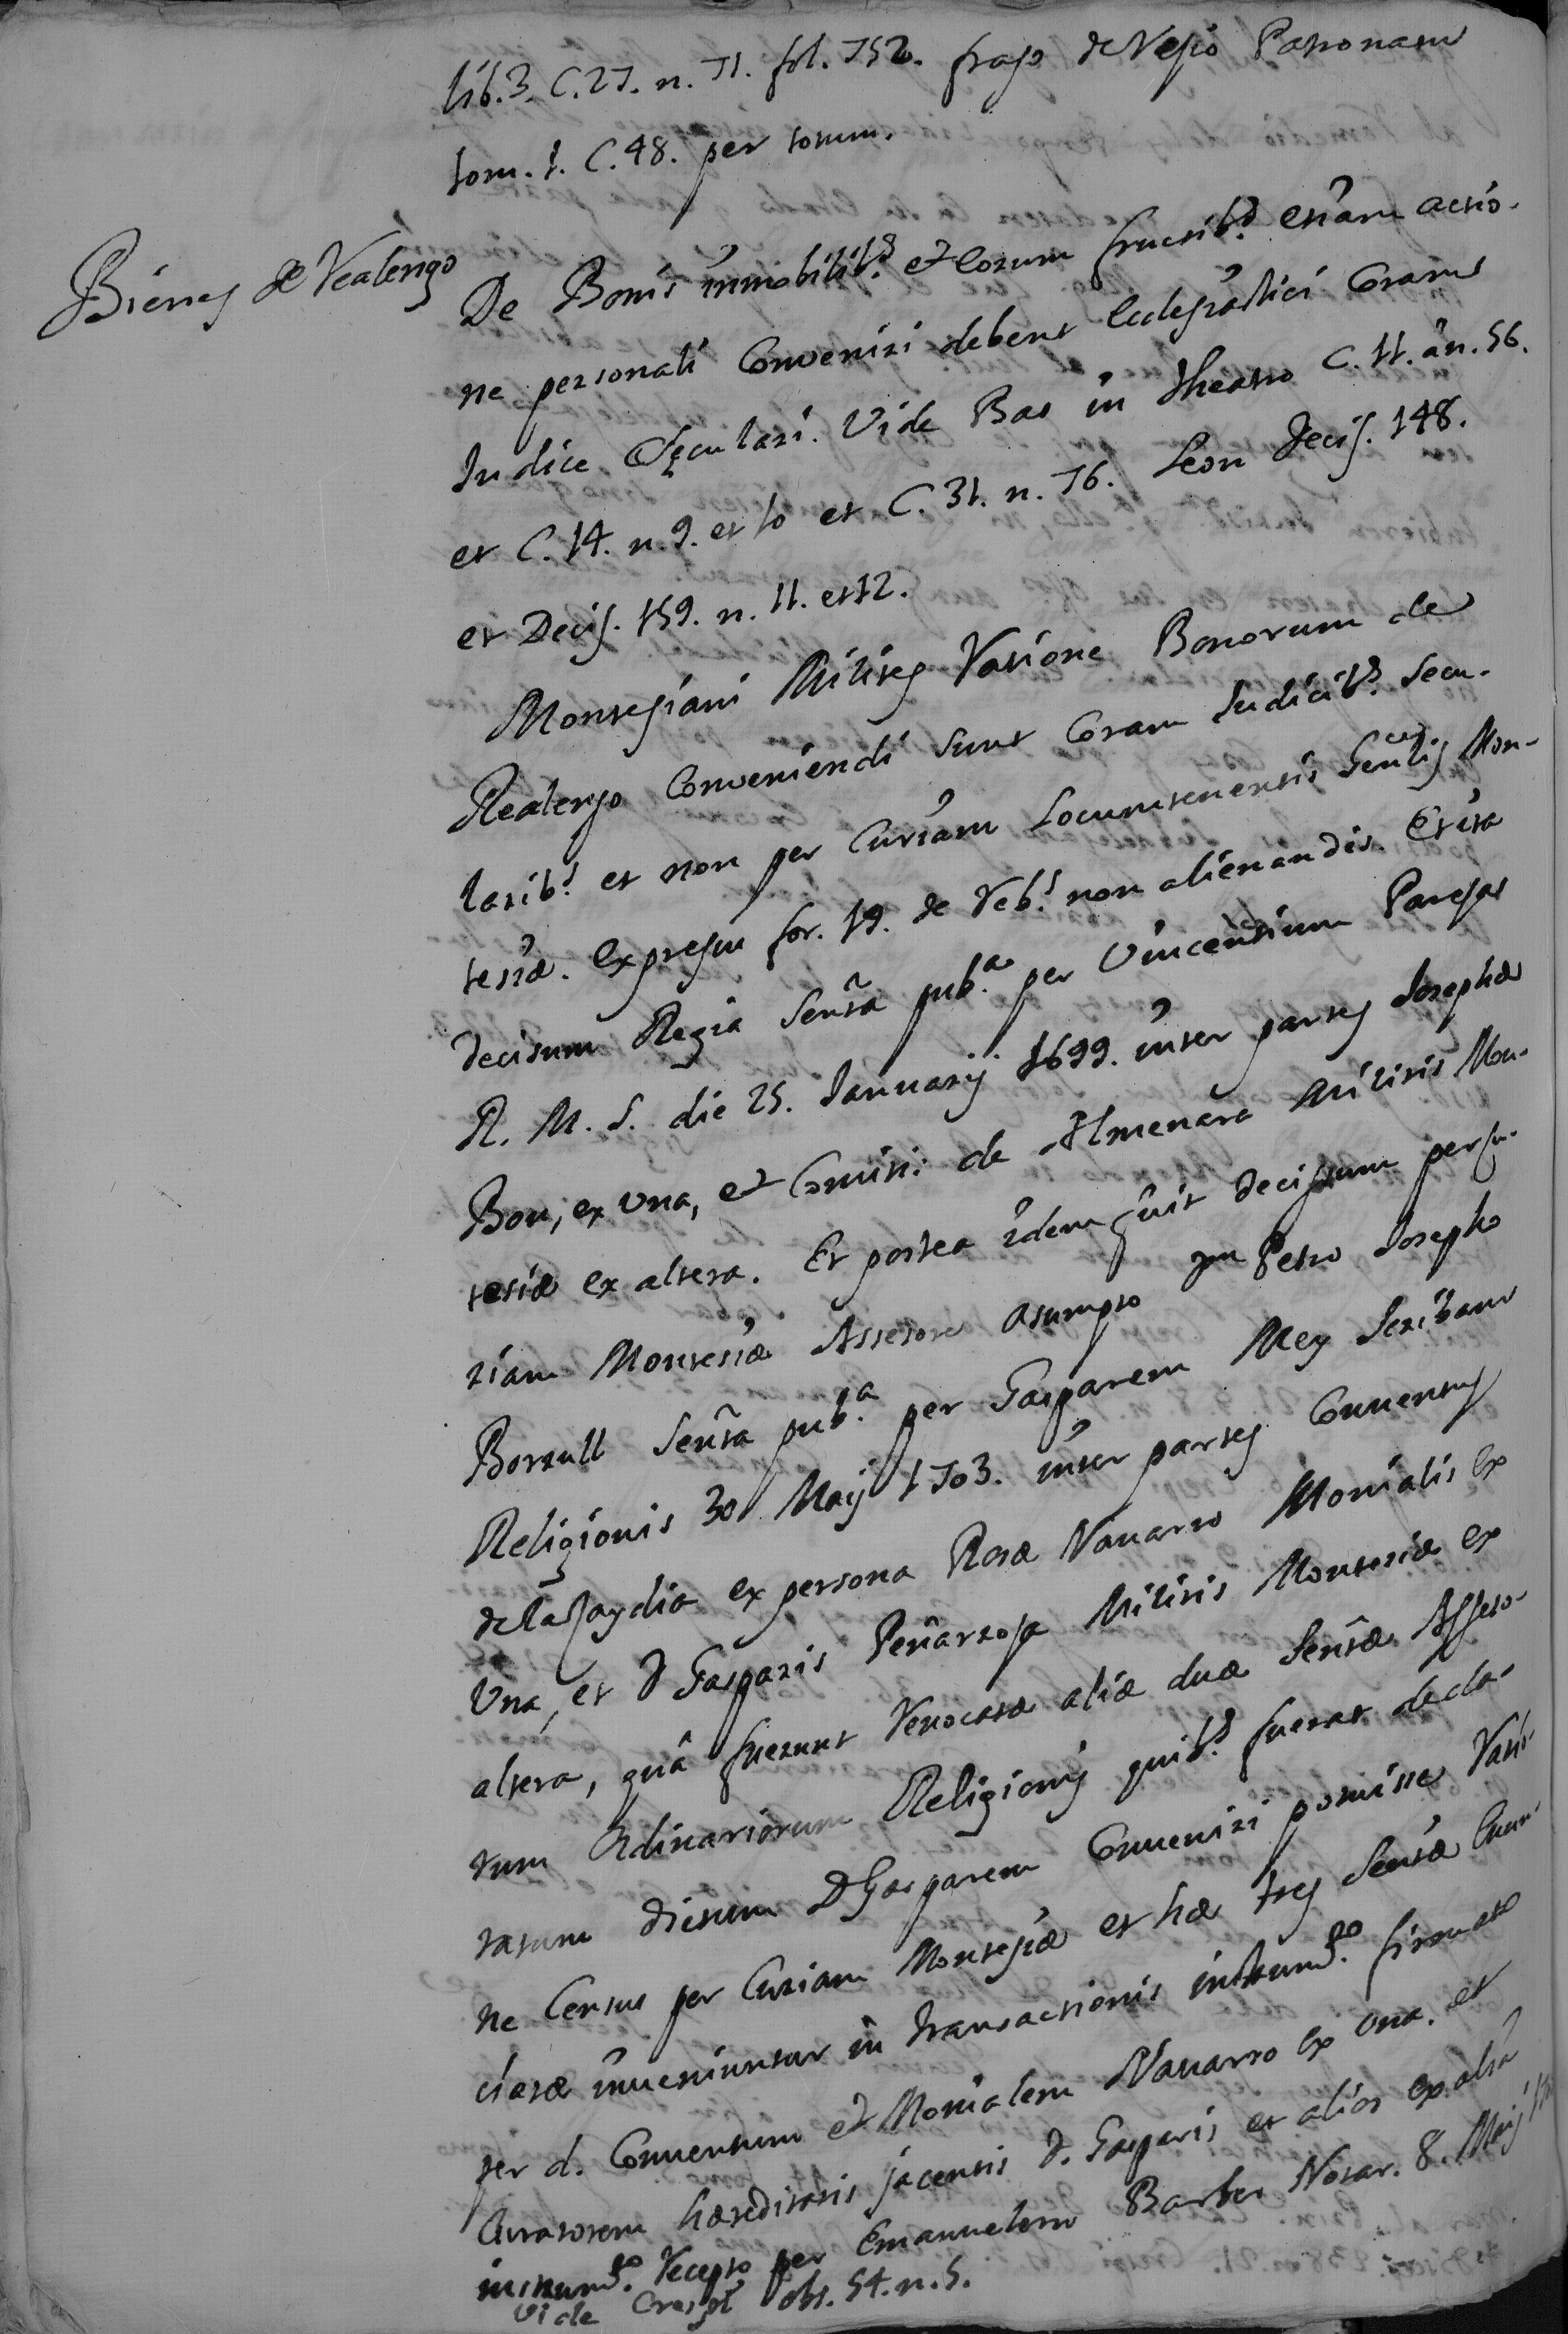 lib. 3. C. 27. n. 71. fol. 752. fraso de Regio Patronatu
tom. 1. C. 48. per totum.
Bienes de Realengo
De Bonis immobilib.s et eorum fructib.s etiam actio-
ne personali Conveniri debent Ecclesiastici Coram
Iudice Sęculari. Vide Bas in theatro C. 11. à n. 56.
et C. 14. n. 9. et 10 et C. 31. n. 76. Leon Decis. 148.
et Decis. 159. n. 11. et 12.
Montesiani Milites Ratione Bonorum de
Realengo Conveniendi sunt Coram Iudicib.s Secu-
larib.s et non per Curiam Locumtenentis Gen͞lis Mon-
tesiæ. Expressu for. 19. de Reb.s non alienandis. Et ita
decisum Regia Sentã pub.a per Vincentium Parejas
R. M. S. die 25. Januarij 1699. inter partes Josephæ
Bou, ex Una, et Comiti: de Almenara Militis Mon-
tesiæ ex altera. Et postea idem fuit decissum per Cu-
riam Montesiæ Assesore asumpto Petro Josepho
Borrull Sentã pub.a per Gasparem Mey Scribam
Religionis 30 Maij 1703. inter partes Conventus
de la Saydia ex persona Rosæ Navarro Monialis ex
Una, et D Gasparis Peñarroja Militis Montesiæ ex
altera, quâ fuerunt Revocatæ aliæ duæ Sentæ Asseso-
rum Ordinariorum Religionis quib.s fuerat decla-
ratum dictum D Gasparem Conveniri potuisse Ratio-
ne Census per Curiam Montesiæ et hæ tres Sentæ Enun-
ciatæ inveniuntur in transactionis instrum.to firmato
per d. Conventum et Monialem Navarro ex una. et
Curatorem hæreditatis jacentis D. Gasparis et alios ex altã
instrum.to Recepto per Emanuelem Barber Notar. 8. Maij
Vide Crespi obs. 54. n. 5.